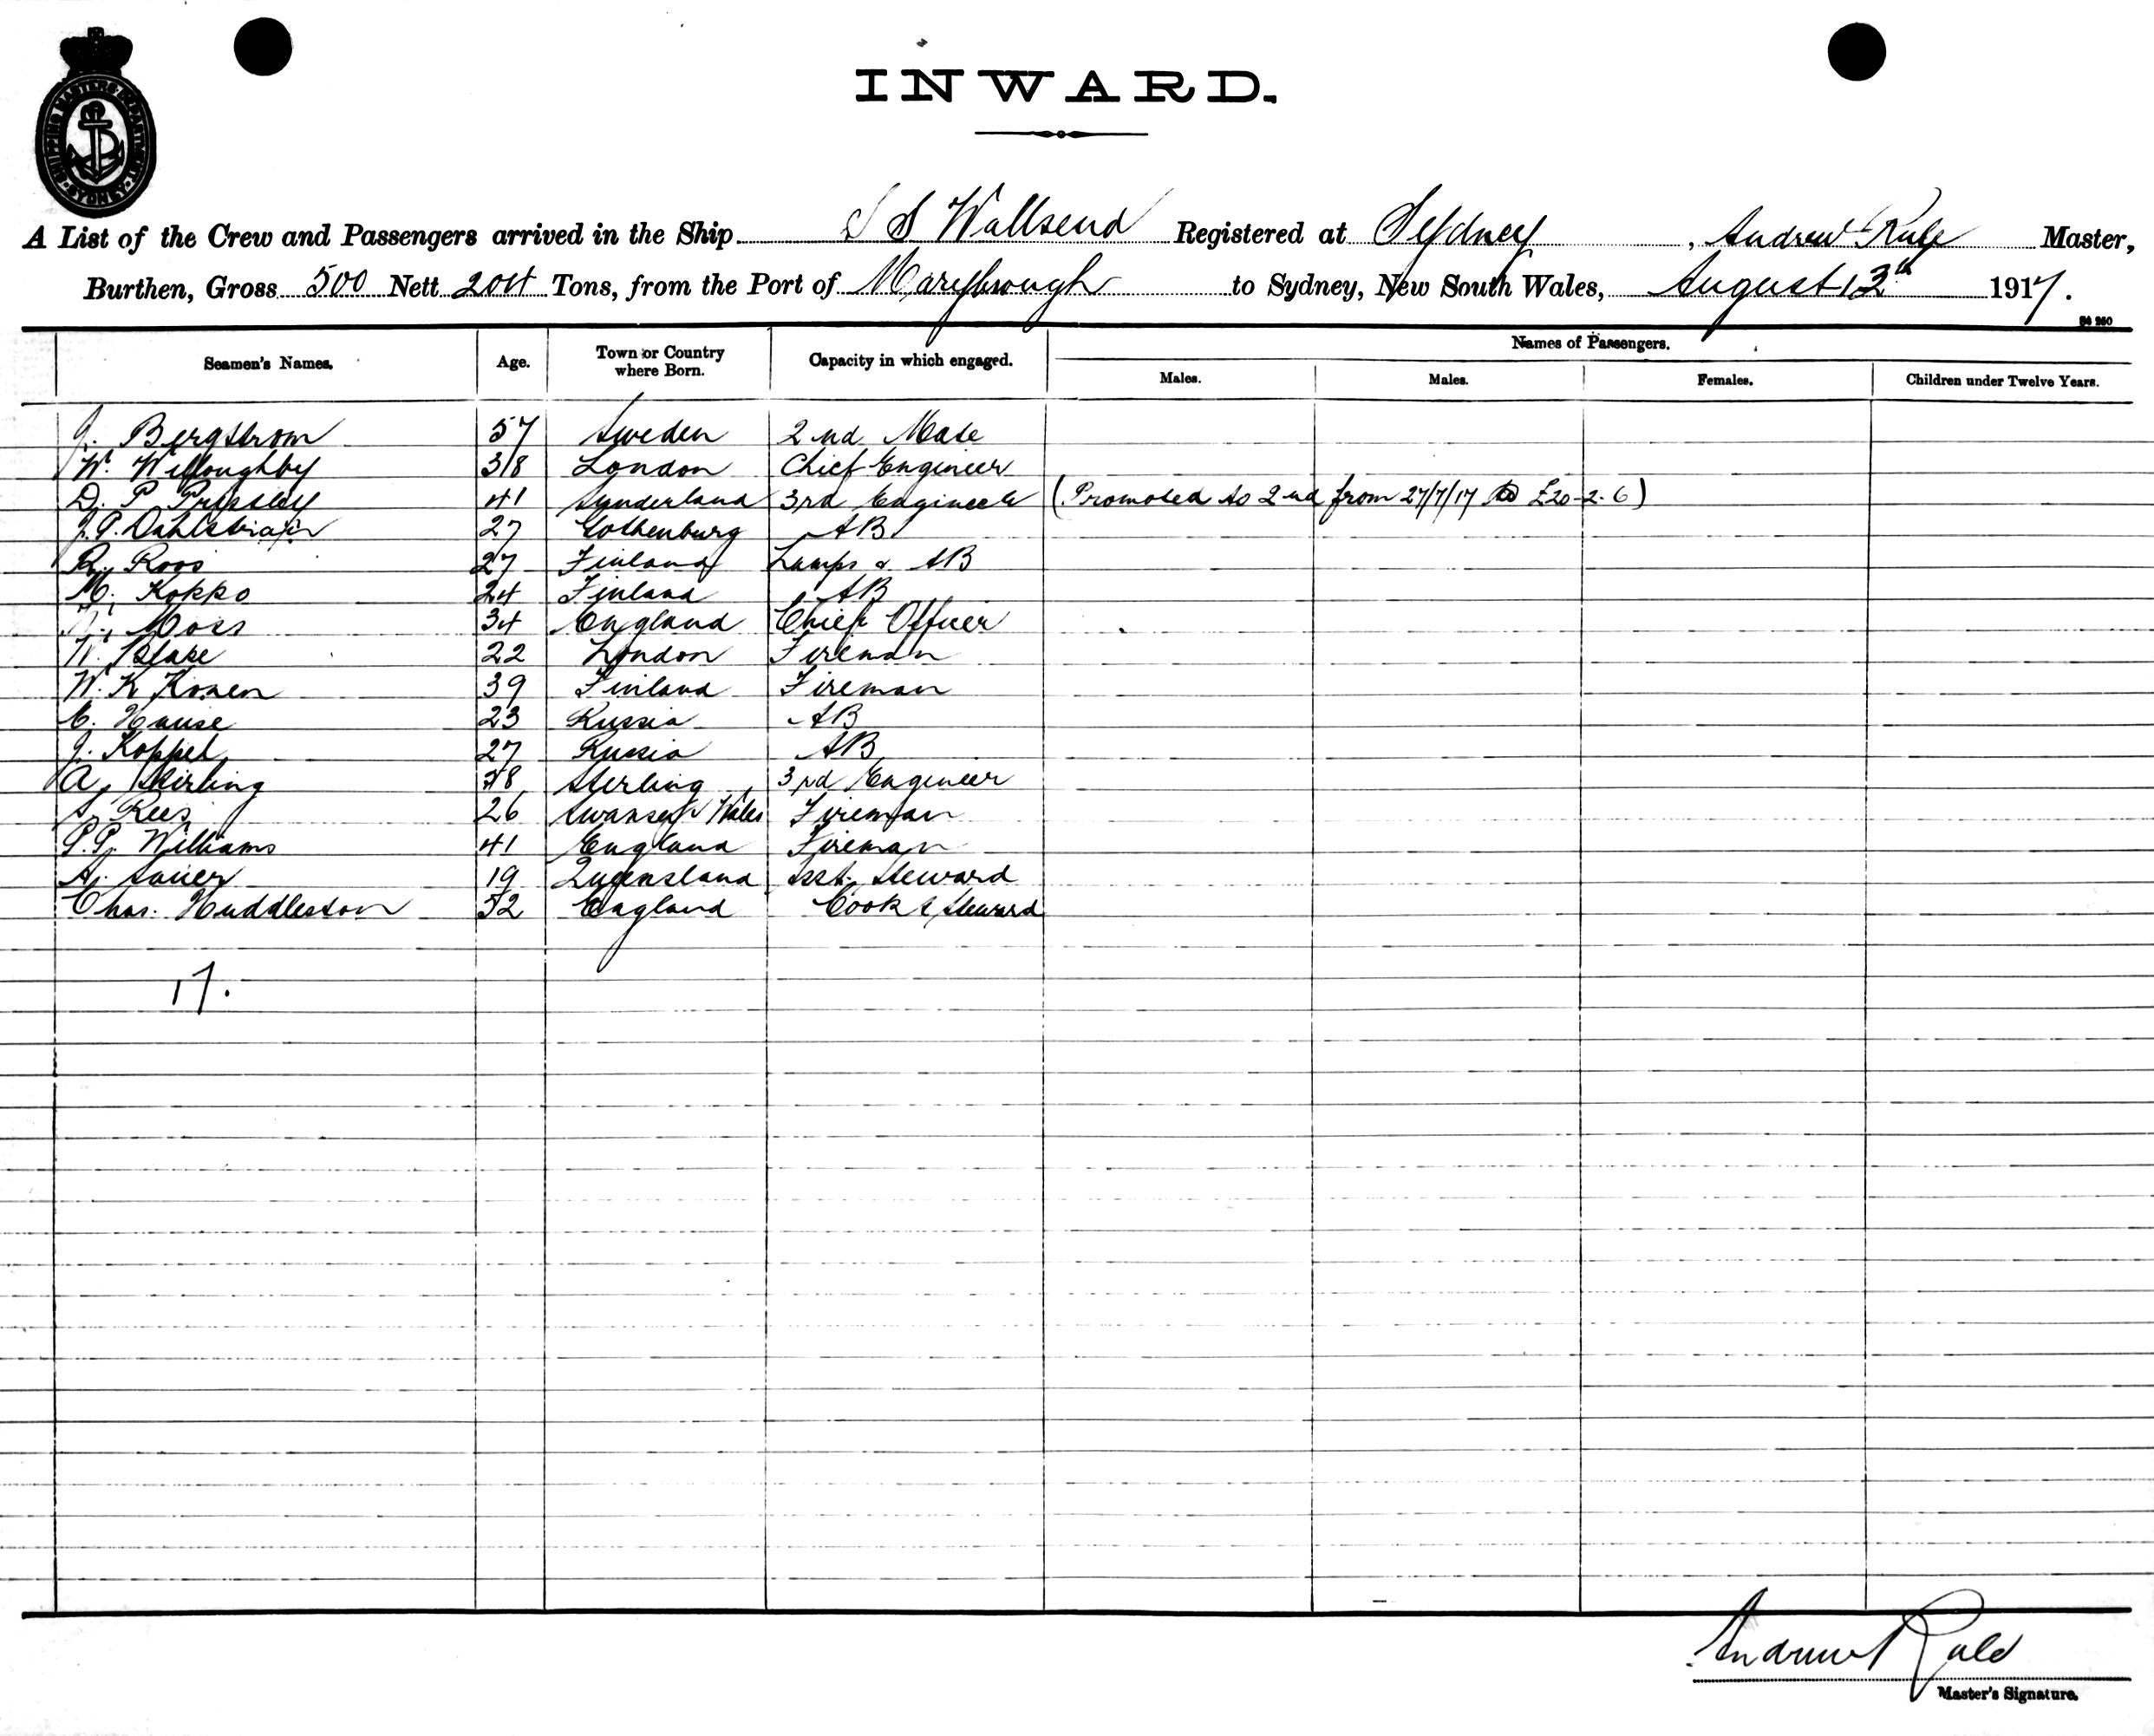 SHIPPING MASTERS DEPARTMENT SYDNEY
INWARD.
A List of the Crew and Passengers arrived in the Ship S S Wallsend Registered at Sydney, Andrew Rule Master,
Burthen, Gross 500 Nett 204 Tons, from the Port of Marybrough to Sydney, New South Wales, August 13th 1917.
Names of Passengers.
Seamen's Names. Age. Town or Country where Born. Capacity in which engaged. Males. Males. Females. Children under Twelve Years.
J. Bergstrom 57 Sweden 2nd Mate
W. Willoughby 38 London Chief Engineer
D. P 41 Sunderland 3rd Engineer (Promoted to 2nd from 27/7/17 £20-2-6)
27 Gothenburg AB
R. Roos 27 Finland Lamps & AB
M. Kokko 24 Finland AB
Moss 34 England Chief Officer
W. Blake 22 London Fireman
W. K 39 Finland Fireman
23 Russia AB
J. Koppel 27 Russia AB
A. Stirling Sterling 3rd Engineer
S. Rees 26 Swansea Wales Fireman
P.P. Williams 41 England Fireman
A. Sauer 19 Queensland Asst. Steward
Chas. Huddleston 52 England Cook & Steward
17.
Andrew Rule
Master's Signature.